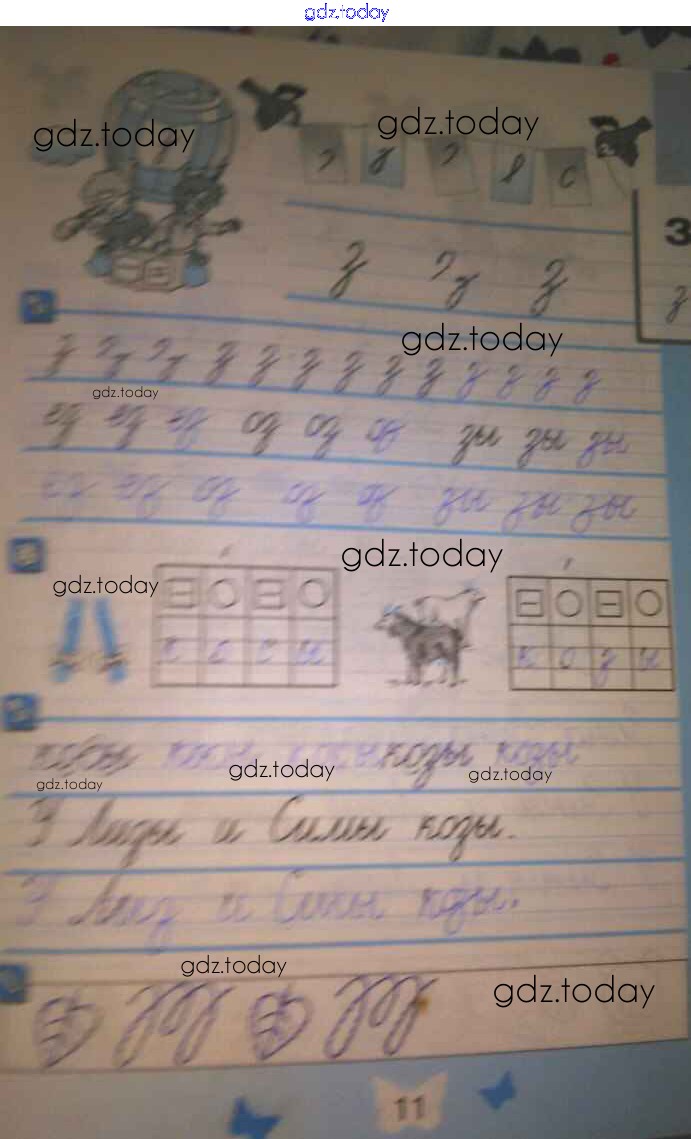 gdz.today
gdz.today
gdz.today
З
з
З з З
gdz.today
з з з з з з з з з з з з з
gdz.today
ез ез ез оз оз оз зы зы зы
ез ез оз оз оз зы зы зы
gdz.today
gdz.today
к о с ы
к о з ы
косы косы косы козы козы
gdz.today
gdz.today
gdz.today
У Лизы и Симы козы.
У Лиз и Симы козы.
gdz.today
gdz.today
11